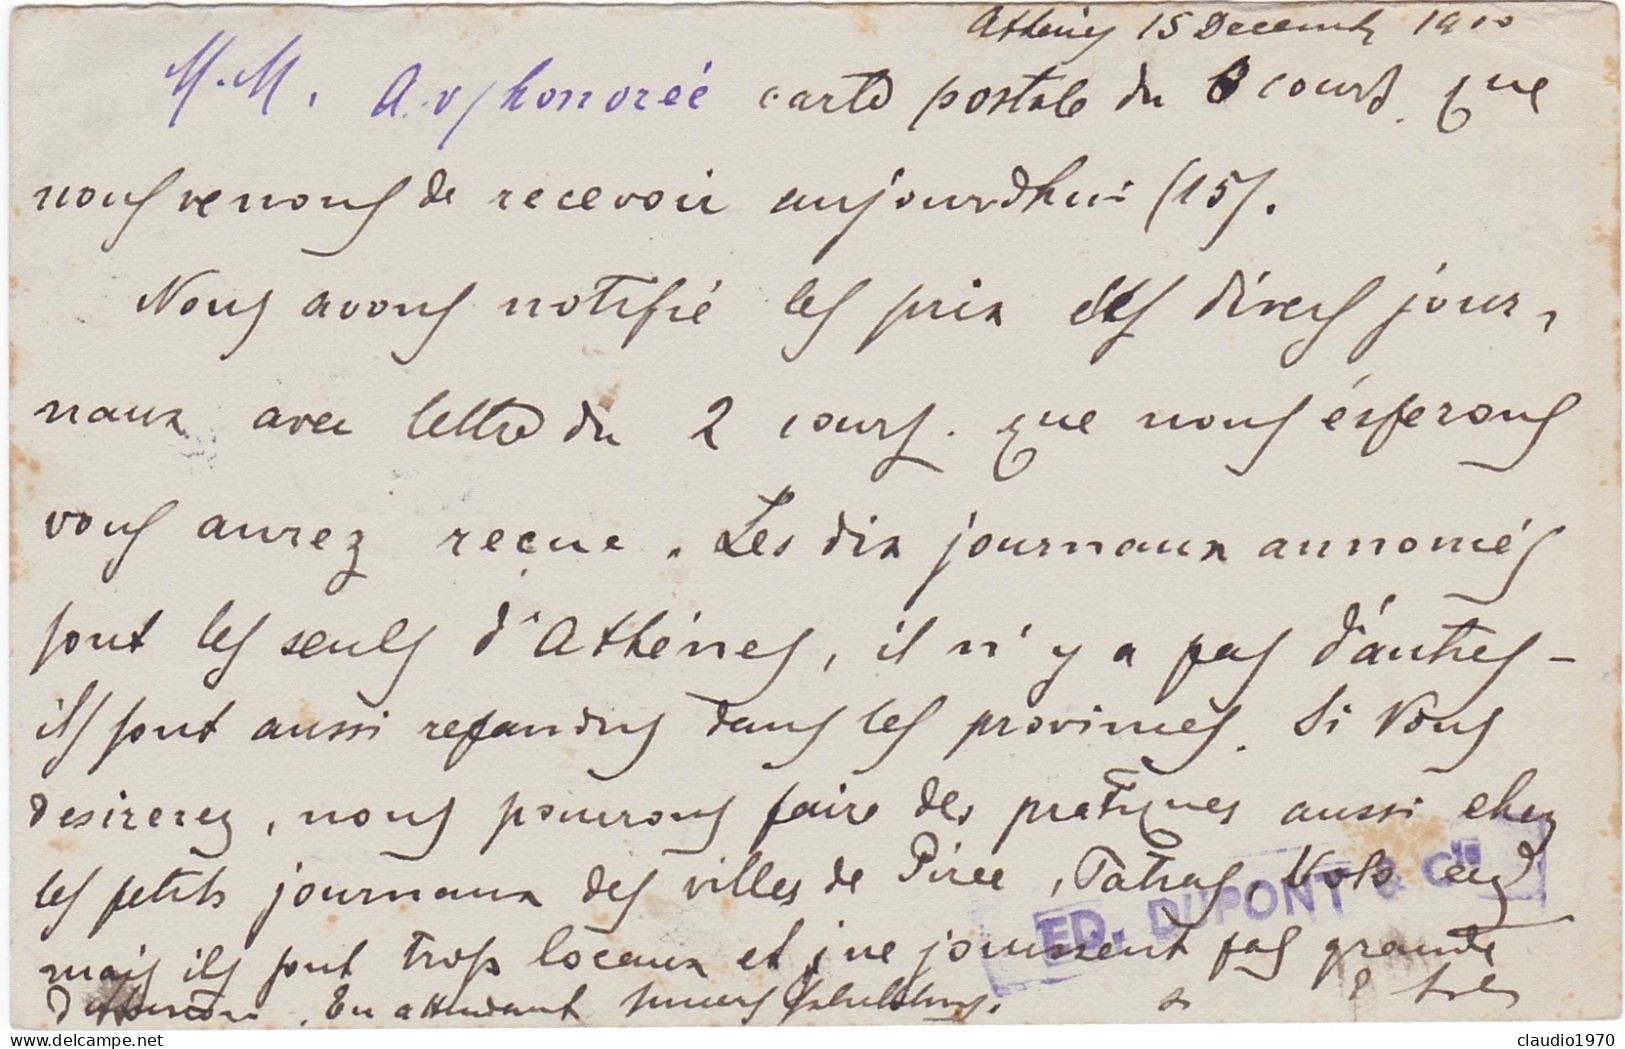 Athènes 15 Decemb 1900
M.M. A v/ honoreé carte postale du 6 court. que
nous venons de recevoir aujourdhui (15).
Nous avons notifié les prix des divers jour-
naux avec lettre du 2 cours. que nous ésperons
vous aurez reçue. Les dix journaux annoncés
sont les seuls d'Athénes, il n'y a pas d'autres –
ils sont aussi repandus dans les provinces. Si Vous
desirerez, nous pourrons faire des pratiques aussi chez
les petits journaux des villes de Pirée, Patras, Volo
mais ils sont trop locaux et ne jouissent pas grande
d'attention. En attendant
ED. DUPONT & Cie
claudio1970